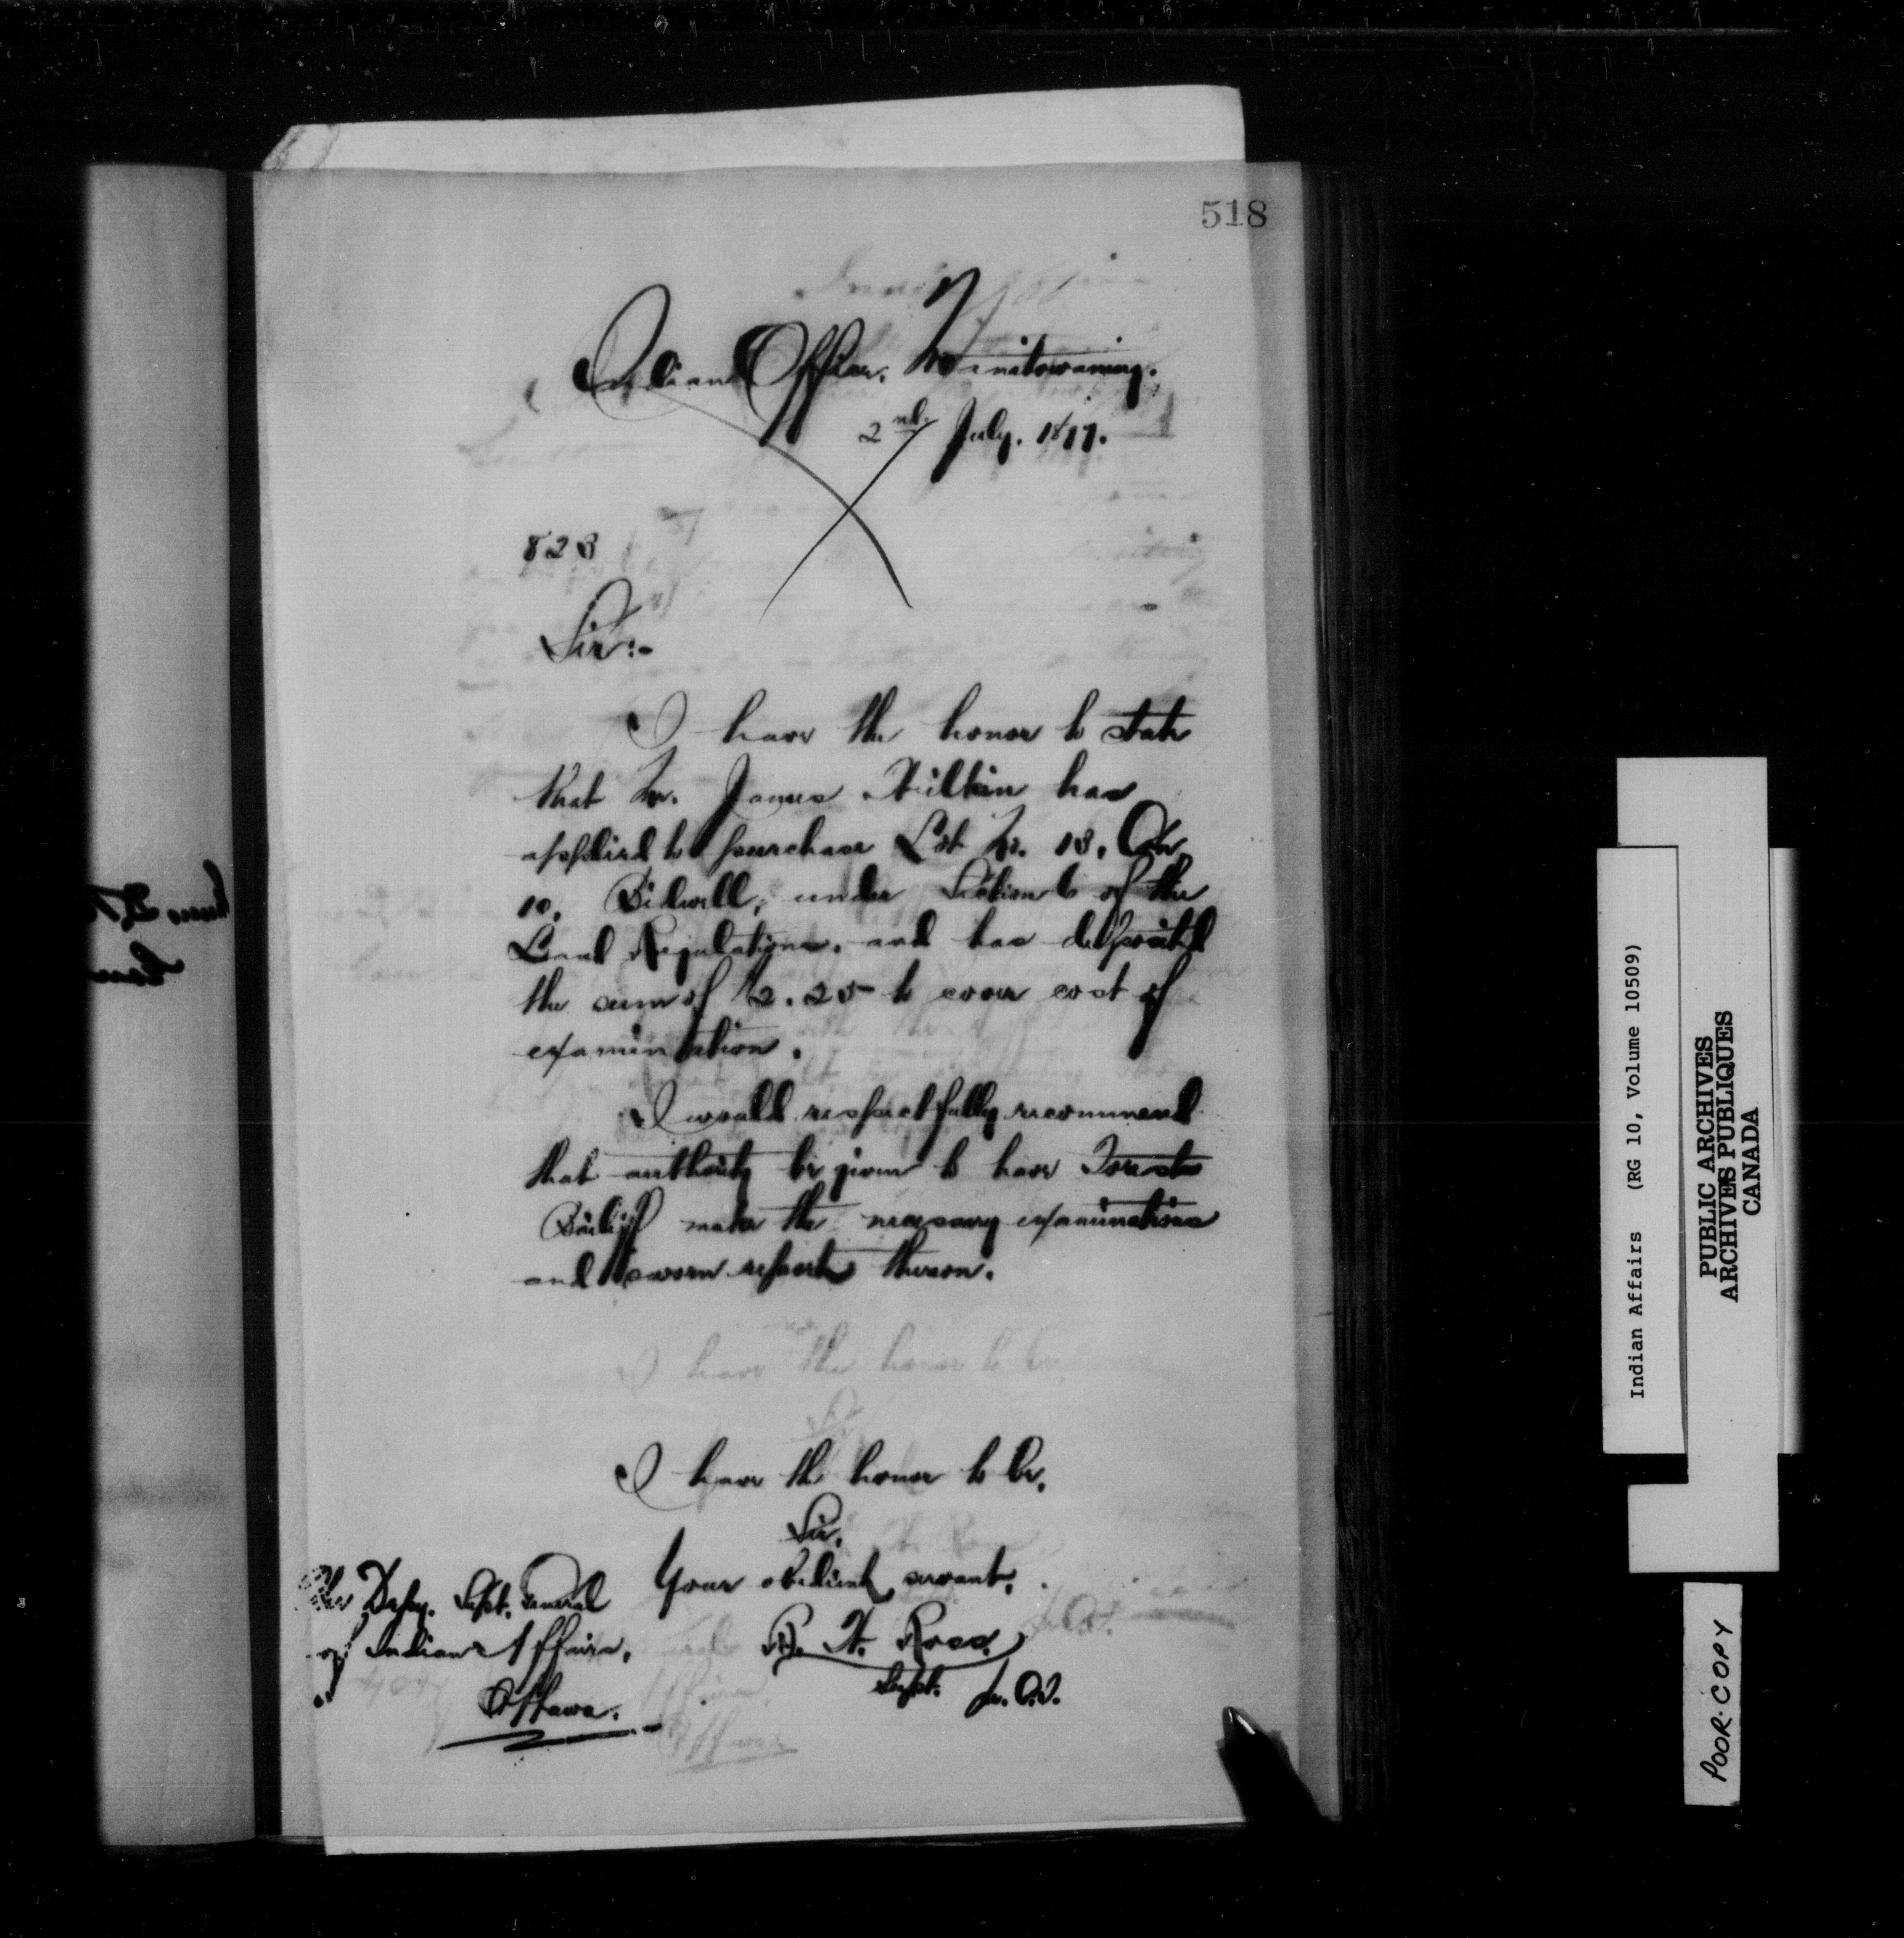 518
Indian Office, Manitowaning.
2nd July. 1897.
823
Sir:-
I have the honor to state
that Mr. James has
applied to purchase Lot No. 13, Con
10, Bidwell, under Section 6 of the
Land Regulations, and has deposited
the sum of $2.25 to cover cost of
examination.
I would respectfully recommend
that authority be given to have Forest
Bailiff make the necessary examinations
and sworn reports thereon.
I have the honor to be,
Sir,
Your obedient servant,
B. W. Ross.
Supt.
The Depy. Supt. General
of Indian Affairs,
Ottawa.
Indian Affairs (RG 10, Volume 10509)
PUBLIC ARCHIVES
ARCHIVES PUBLIQUES
CANADA
POOR COPY